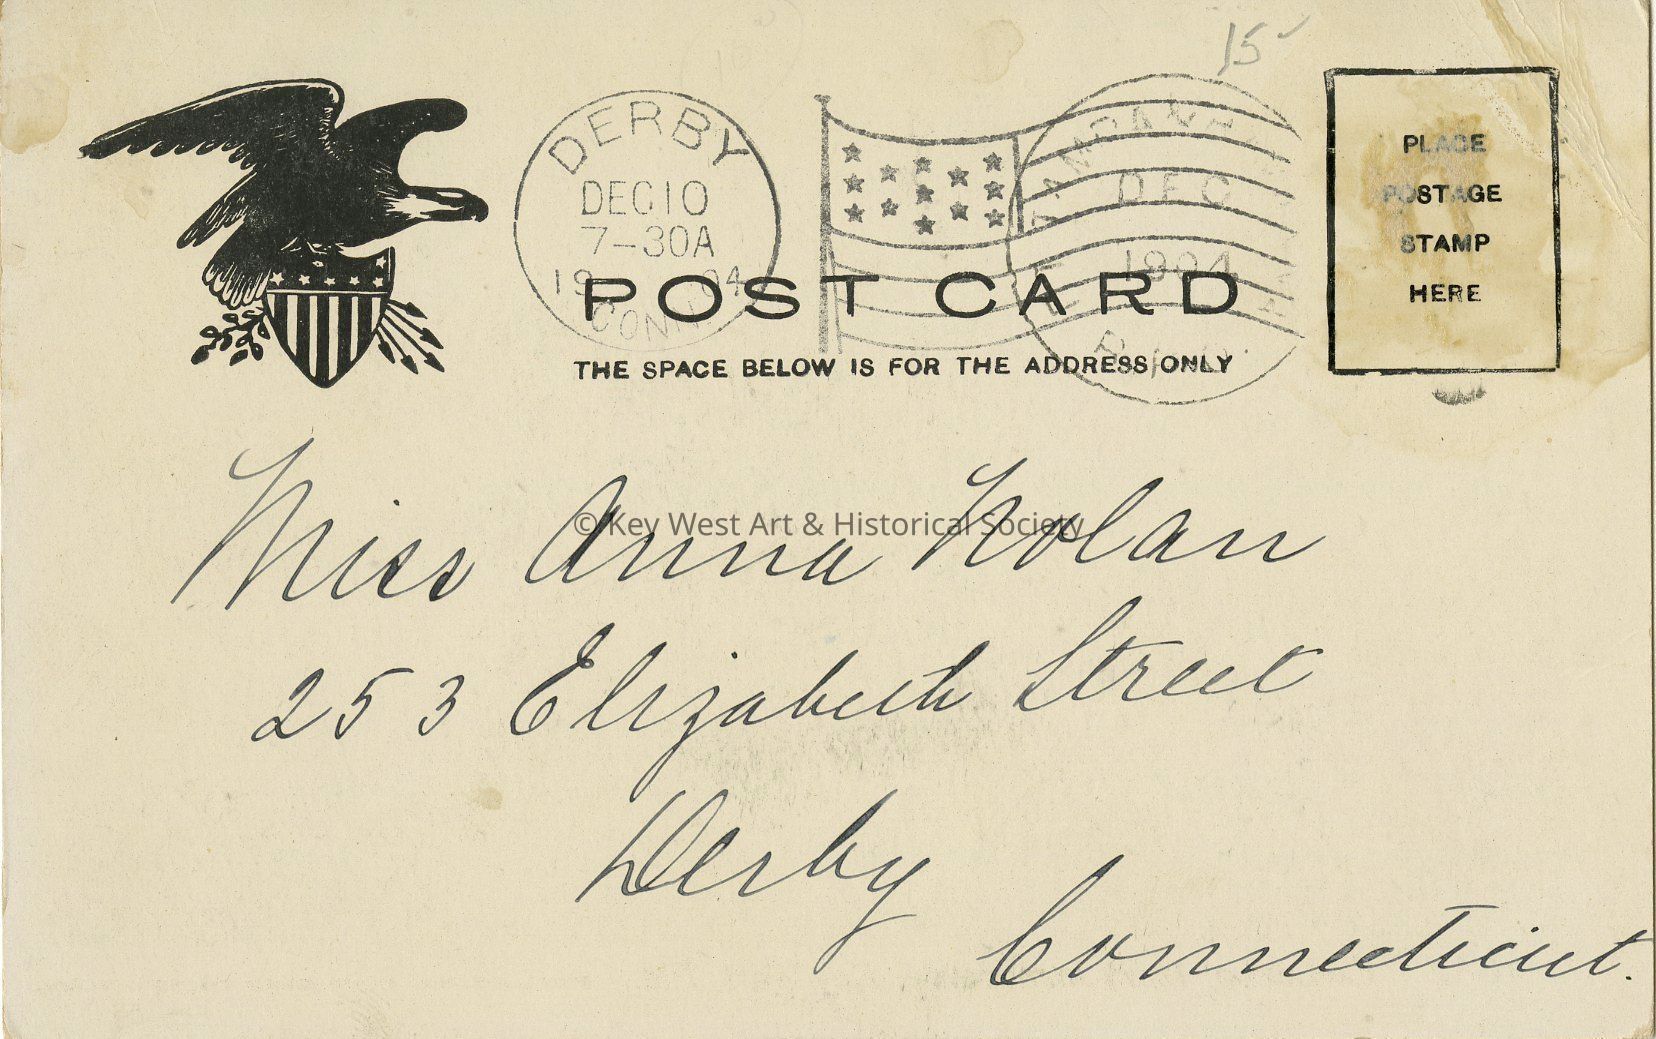 15
DERBY
DEC 10
7-30A
19 04
CONN.
DEC
1904
R.P.O.
POST CARD
THE SPACE BELOW IS FOR THE ADDRESS ONLY
PLACE
POSTAGE
STAMP
HERE
Miss Anna Nolan
© Key West Art & Historical Society
253 Elizabeth Street
Derby
Connecticut.